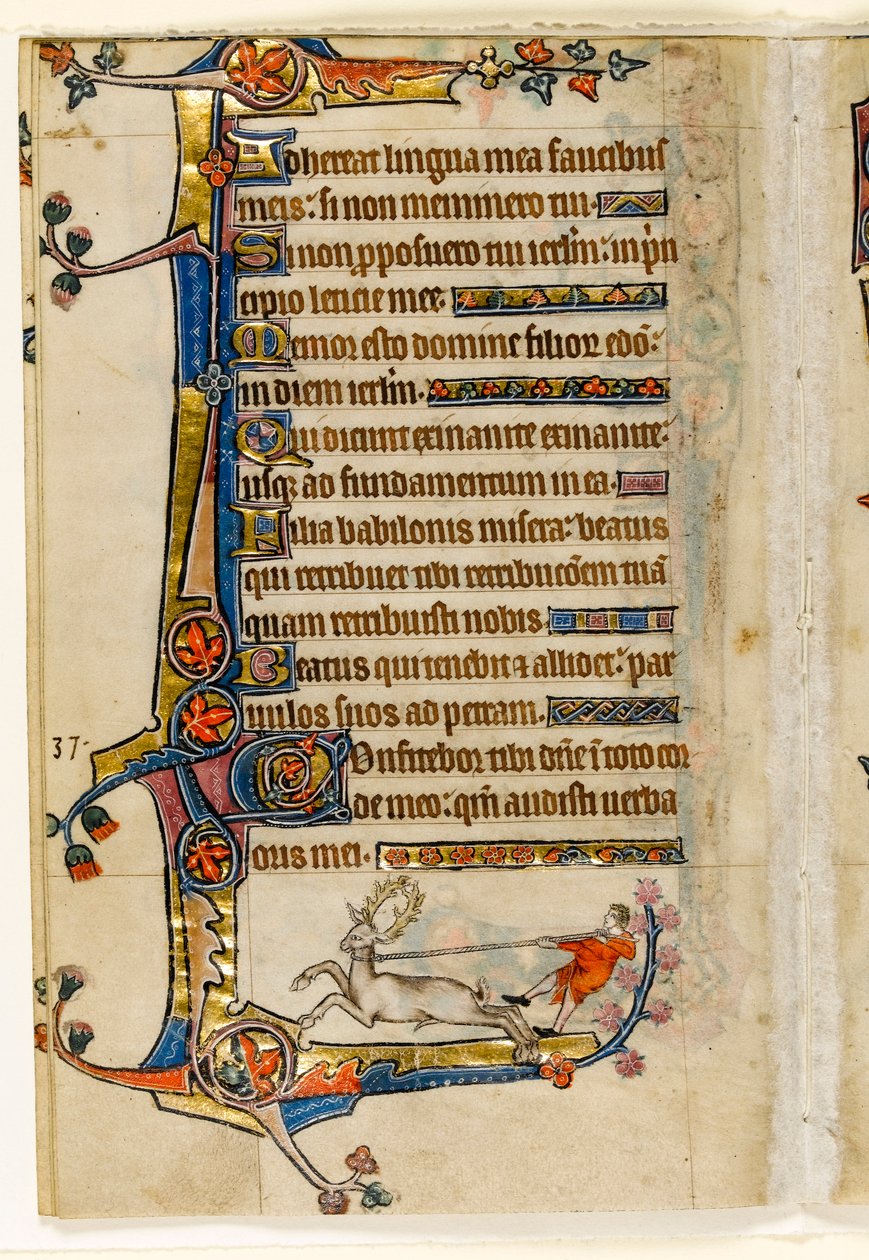 Adhereat lingua mea faucibus
meis: si non meminero tui.
Si non ꝓposuero tui ierlm̄: in pͥn
cipio leticie mee.
Memor esto domine filioꝝ edō:
in diem ierlm̄.
Qui dicunt exinanite exinanite:
usqꝫ ad fundamentum in ea.
Filia babilonis misera: beatus
qui retribuet tibi retribucōem tuā
quam retribuisti nobis.
Beatus qui tenebit ⁊ allidet: par
uulos suos ad petram.
37-
Confitebor tibi dn̄e ī toto cor
de meo: qm̄ audisti uerba
oris mei.